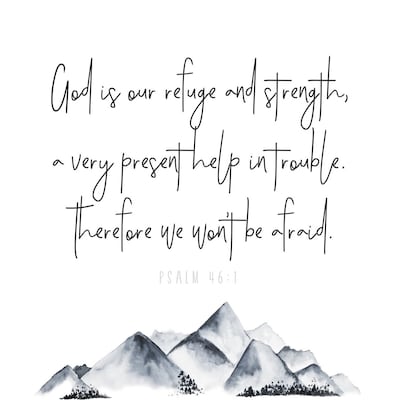 God is our refuge and strength,
a very present help in trouble.
Therefore we won't be afraid.
PSALM 46:1